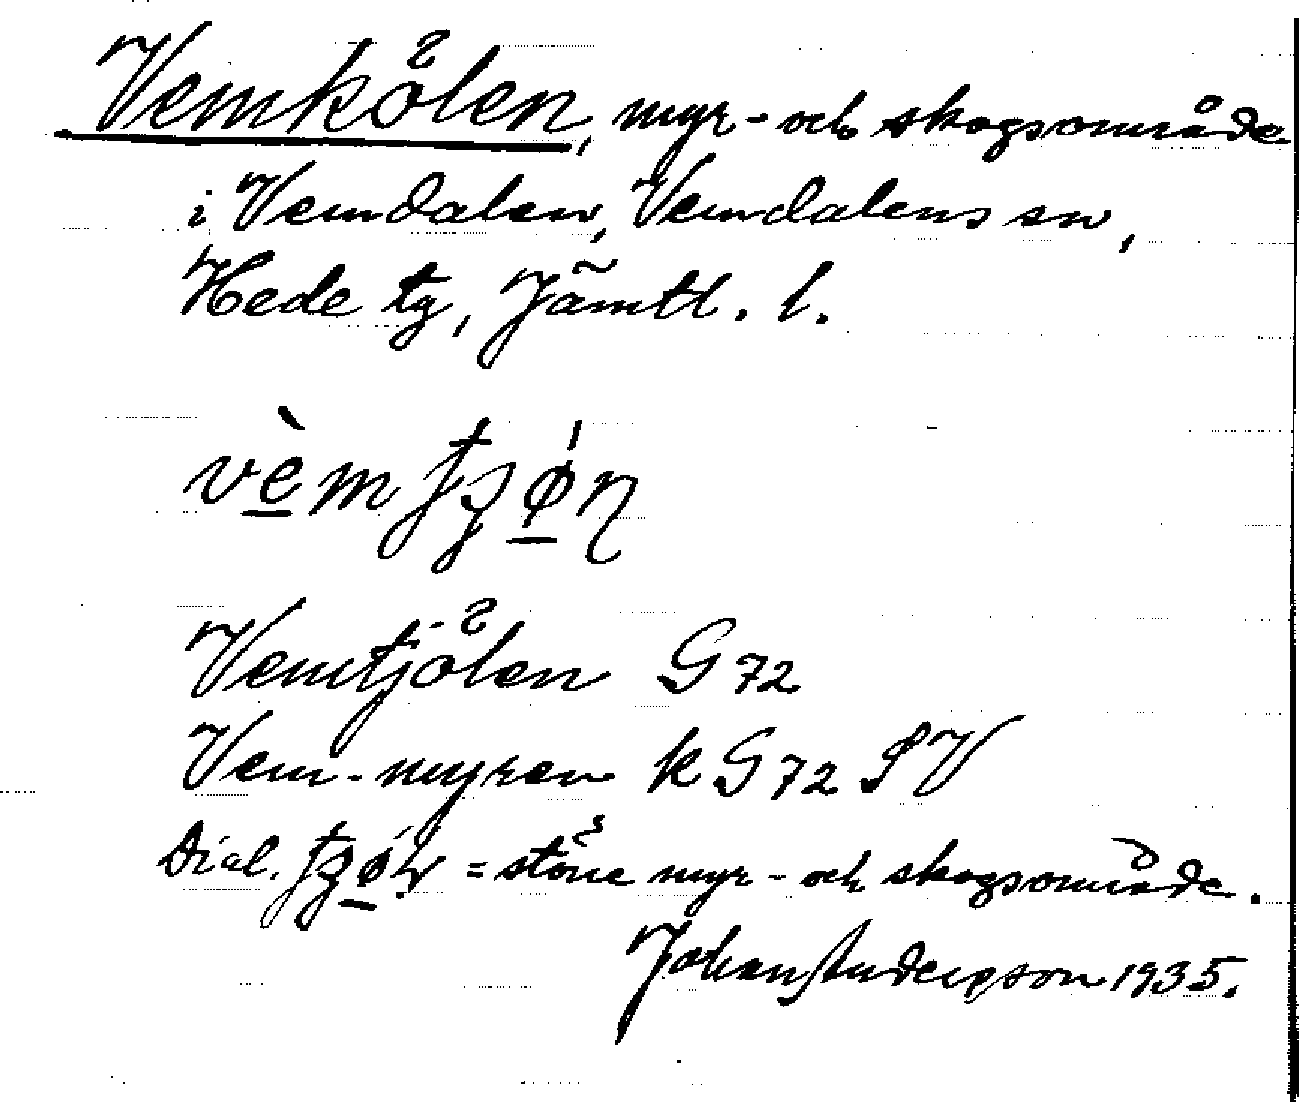 Vemkölen, myr- och skogsområde
i Vemdalen, Vemdalens sn,
Hede tg, Jämtl. l.
Vemtjölen G 72
Vem-myren k G 72 SV
Dial. = större myr- och skogsområde.
Johan Anderson 1935.